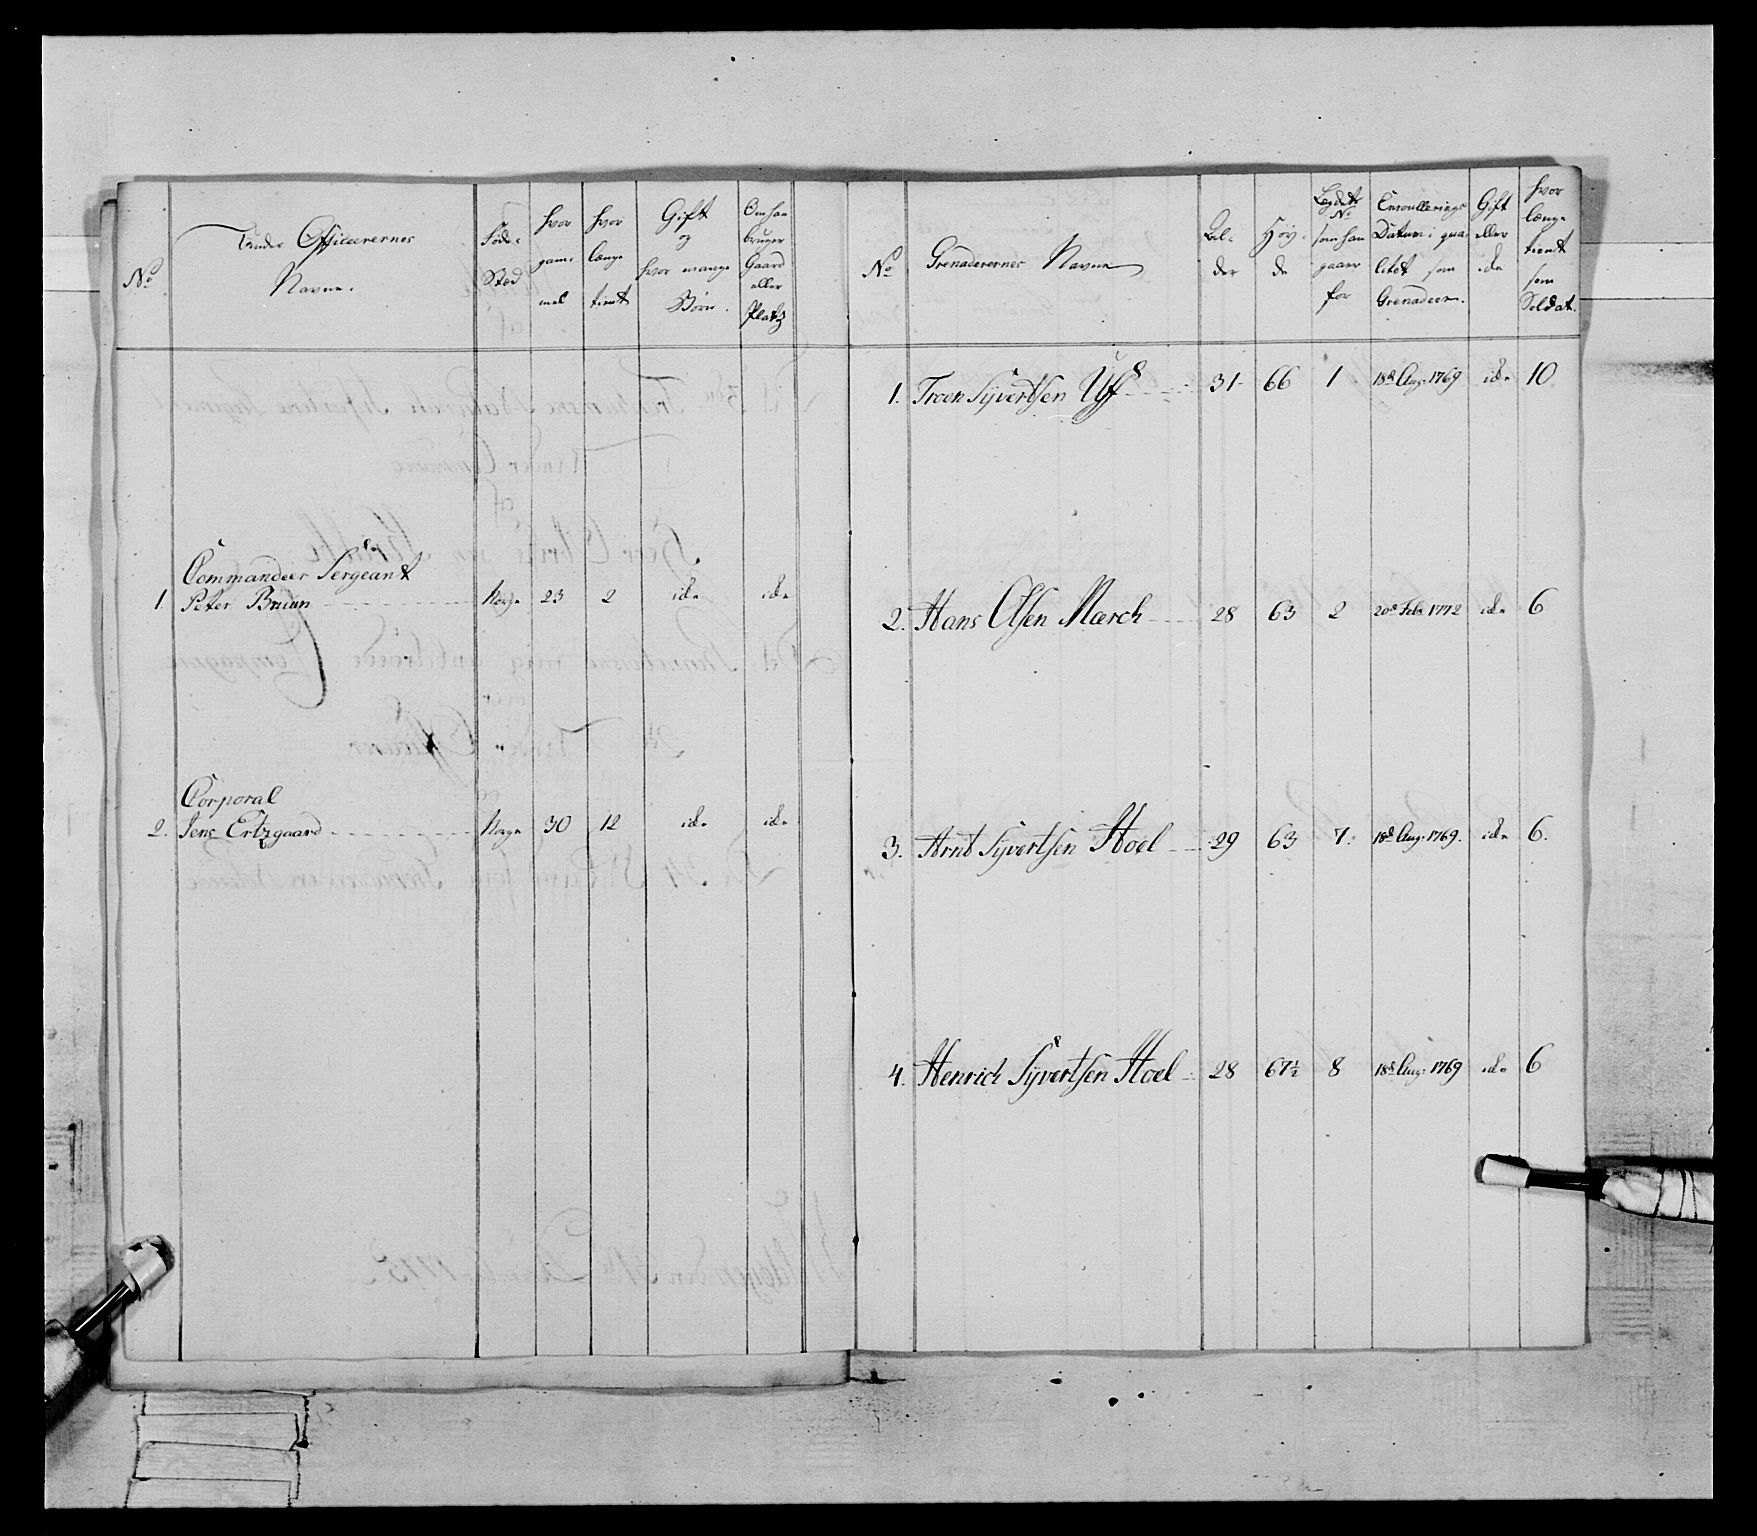 No
Under Officerernes
Navne.
Føde-
Stæd
hvor
gam-
mel
hvor
længe
tient
Gift
og
hvor mange
Børn.
Om han
bruger
Gaard
eller
Platz
1.
Commandeer Sergeant
Peter Bruun
Norge 23 2 icke icke
Corporal
2. Jens Ertzgaard
Norge 30 12 icke icke
No
Grenaderernes Navne
Høy-
de
Legdets
No
som han
gaaer
for
Enroullerings
Datum i qua-
litet som
Grenadeer.
Gift
eller
icke
hvor
længe
tient
som
Soldat.
1. Troen Syvertsen Uf 31 66 1 18d Aug. 1769 icke 10
2. Hans Olsen Mærch 28 63 2 20d Febr 1772 icke 6
3. Arnt Syvertsen Hoel 29 63 7. 18d Aug. 1769. icke 6.
4. Henrich Syvertsen Hoel 28 67½ 8 18d Aug. 1769 icke 6